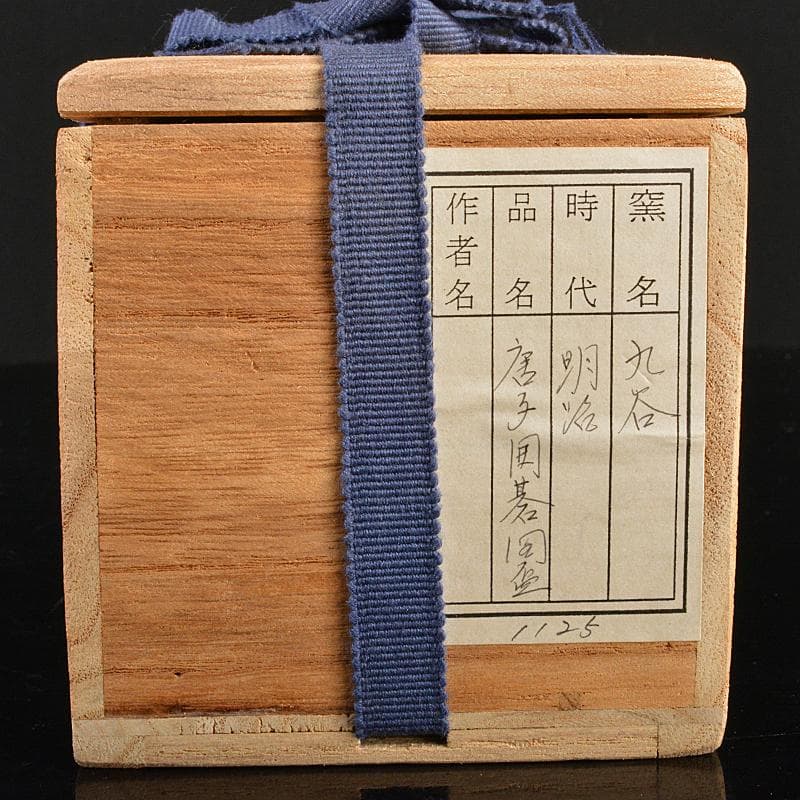 窯名 九谷
時代 明治
品名 唐子囲碁図盃
作者名
1125